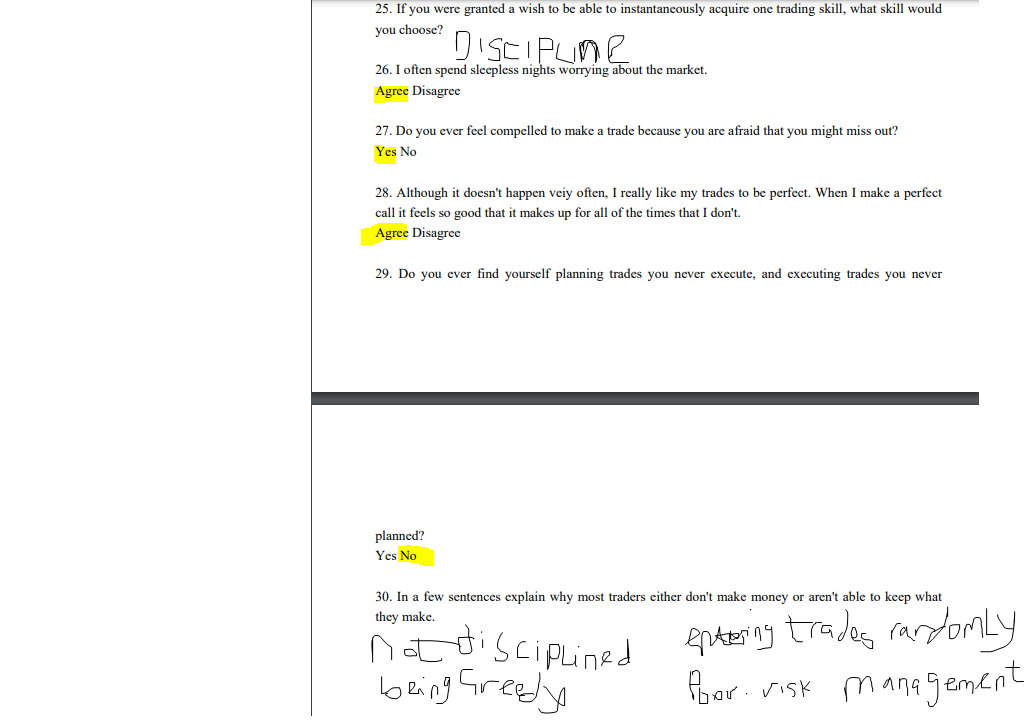 25. If you were granted a wish to be able to instantaneously acquire one trading skill, what skill would
you choose?
DISCIPLINE
26. I often spend sleepless nights worrying about the market.
Agree Disagree
27. Do you ever feel compelled to make a trade because you are afraid that you might miss out?
Yes No
28. Although it doesn't happen veiy often, I really like my trades to be perfect. When I make a perfect
call it feels so good that it makes up for all of the times that I don't.
Agree Disagree
29. Do you ever find yourself planning trades you never execute, and executing trades you never
planned?
Yes No
30. In a few sentences explain why most traders either don't make money or aren't able to keep what
they make.
Not disciplined
being Greedy
entering trades randomly
Poor risk management